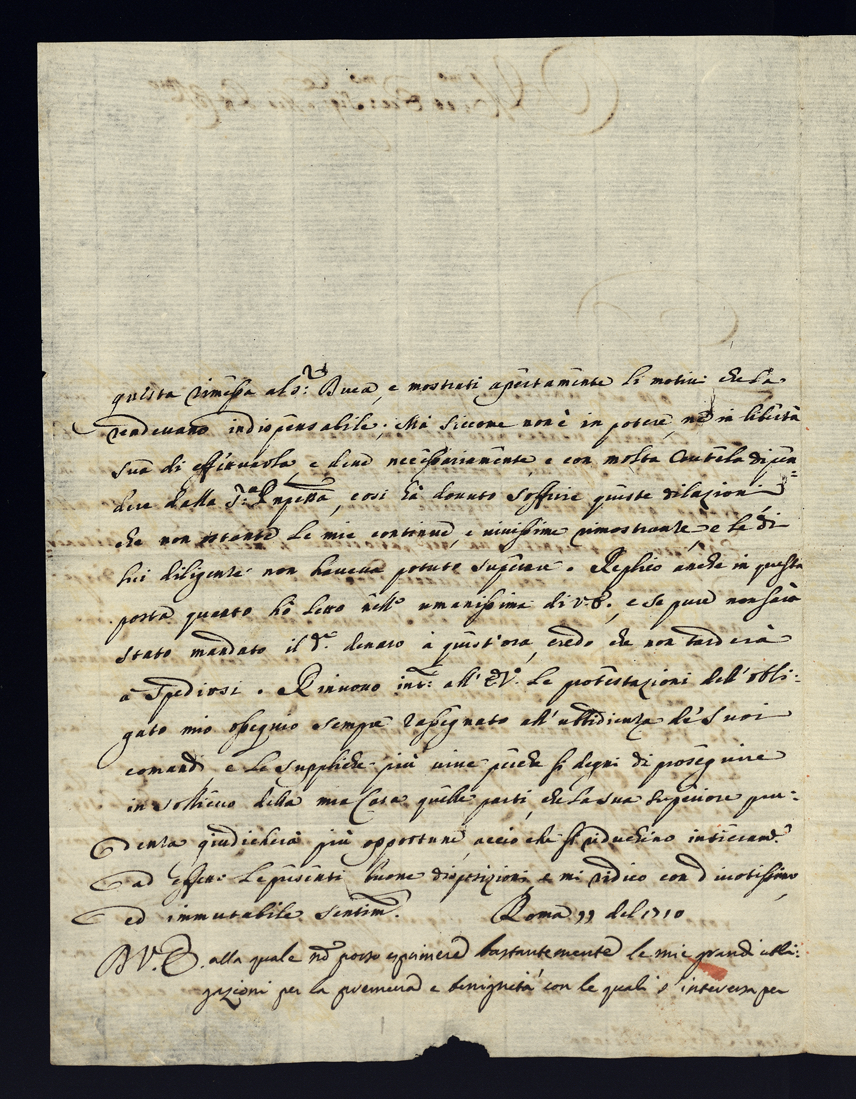 questa rimessa al s.r Duca, e mostrati apertamente li motivi che la
rendevano indispensabile. Mà siccome non è in potere, nè in libertà
sua di effettuarla, e deve necessariamente e con molta Cautela dipen=
dere dalla S.ra, così hà dovuto soffrire queste dilazioni
che non ostante le mie continue, e vivissime rimostranze, e le di
lui diligenze non haveva potuto superare. Replico anche in questa
posta quanto hò letto nell' umanissima di V.E., e se pure non sarà
stato mandato il d.o denaro à quest'ora, credo che non tarderà
à spedirsi. Rinuovo int.to all' E.V. le protestazioni dell' obli=
gato mio ossequio sempre rassegnato all' ubbidienza de' suoi
comandi, e le suppliche più vive perche si degni di proseguire
in sollievo della mia Casa quelle parti, che la sua superiore pru=
denza giudicherà più opportune, acciò che si riduchino intieram.te
ad le presenti buone disposizioni, e mi ridico con divotissimo,
ed immutabile sentim.to Roma del 1710
D V.E. alla quale nò posso esprimere bastantemente le mie grandi obli=
gazioni per la premura e benignità con le quali s' interessa per